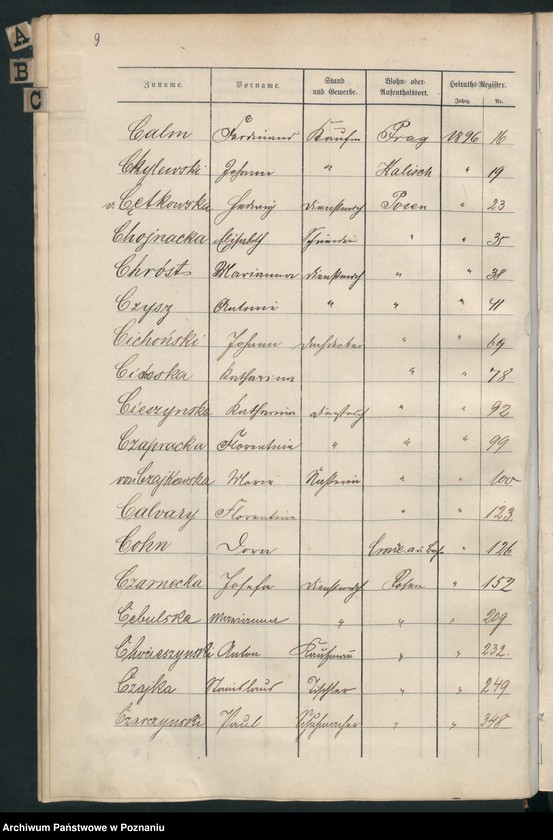 9
A
B
C
Zuname. Vorname. Stand und Gewerbe. Wohn- oder Aufenthaltsort. Heiraths-Register.
Jahrg. Nr.
Calm Ferdinand Kaufm Prag 1896 16
Chylewski Johann " Kalisch " 19
v. Cętkowska Hedwig Dienstmdch Posen " 23
Chojnacka Elisabeth " " 35
Chróst Marianna Dienstmdch " " 38
Czysz Antonie " " " 41
Cichoński Johann Dachdecker " " 69
Katharina " " 78
Cieszynska Katharina Dienstmdch " " 92
Czapracka Florentine " " " 99
von Czajkowska Marie Näherin " " 100
Calvary Florentine " " 123
Cohn Dora " 126
Czarnecka Josefa Dienstmdch Posen " 152
Cebulska Marianna " " " 209
Anton Kaufmann " " 232.
Czajka Stanislaus Tischler " " 249
Czarczynski Paul Schuhmacher " " 348
Archiwum Państwowe w Poznaniu